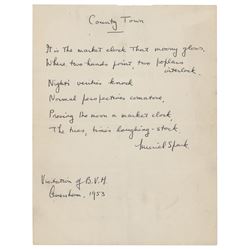 County Town
It is the market clock that moony glows,
Where two hands point, two poplars
interlock.
Night's verities knock
Normal perspectives comatose,
Proving the moon a market clock,
The trees, time's laughing-stock
Muriel Spark
Visitation of B.V.M.
1953